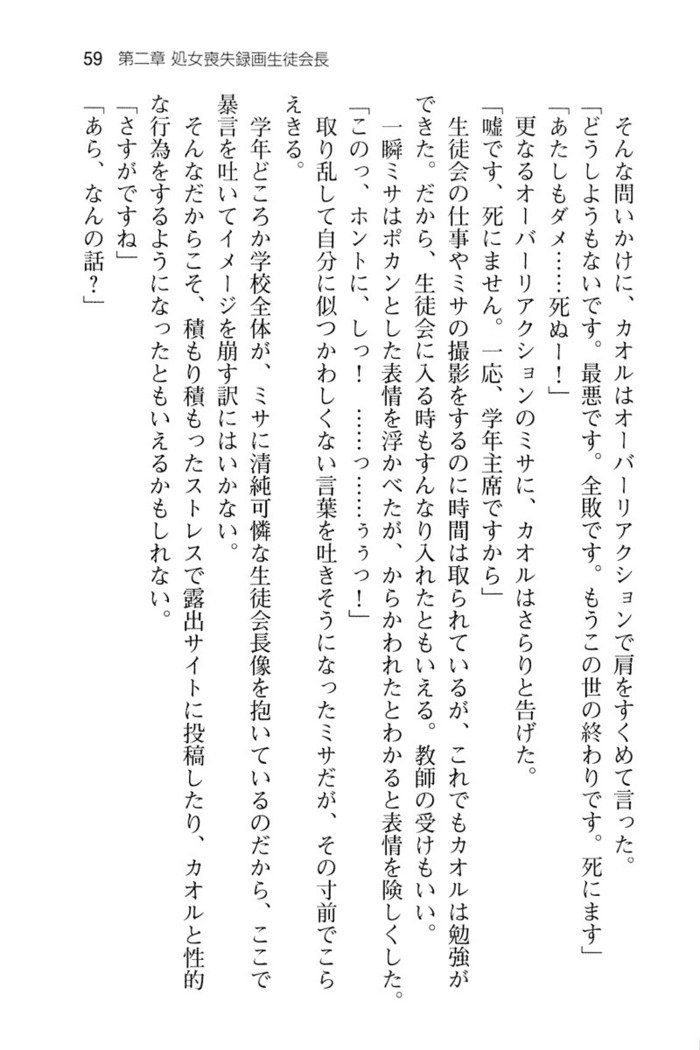 59 第二章 処女喪失録画生徒会長
そんな問いかけに、カオルはオーバーリアクションで肩をすくめて言った。
「どうしようもないです。最悪です。全敗です。もうこの世の終わりです。死にます」
「あたしもダメ……死ぬー！」
更なるオーバーリアクションのミサに、カオルはさらりと告げた。
「嘘です、死にません。一応、学年主席ですから」
生徒会の仕事やミサの撮影をするのに時間は取られているが、これでもカオルは勉強が
できた。だから、生徒会に入る時もすんなり入れたともいえる。教師の受けもいい。
一瞬ミサはポカンとした表情を浮かべたが、からかわれたとわかると表情を険しくした。
「このっ、ホントに、しっ！　……っ……ぅぅっ！」
取り乱して自分に似つかわしくない言葉を吐きそうになったミサだが、その寸前でこら
えきる。
学年どころか学校全体が、ミサに清純可憐な生徒会長像を抱いているのだから、ここで
暴言を吐いてイメージを崩す訳にはいかない。
そんなだからこそ、積もり積もったストレスで露出サイトに投稿したり、カオルと性的
な行為をするようになったともいえるかもしれない。
「さすがですね」
「あら、なんの話？」